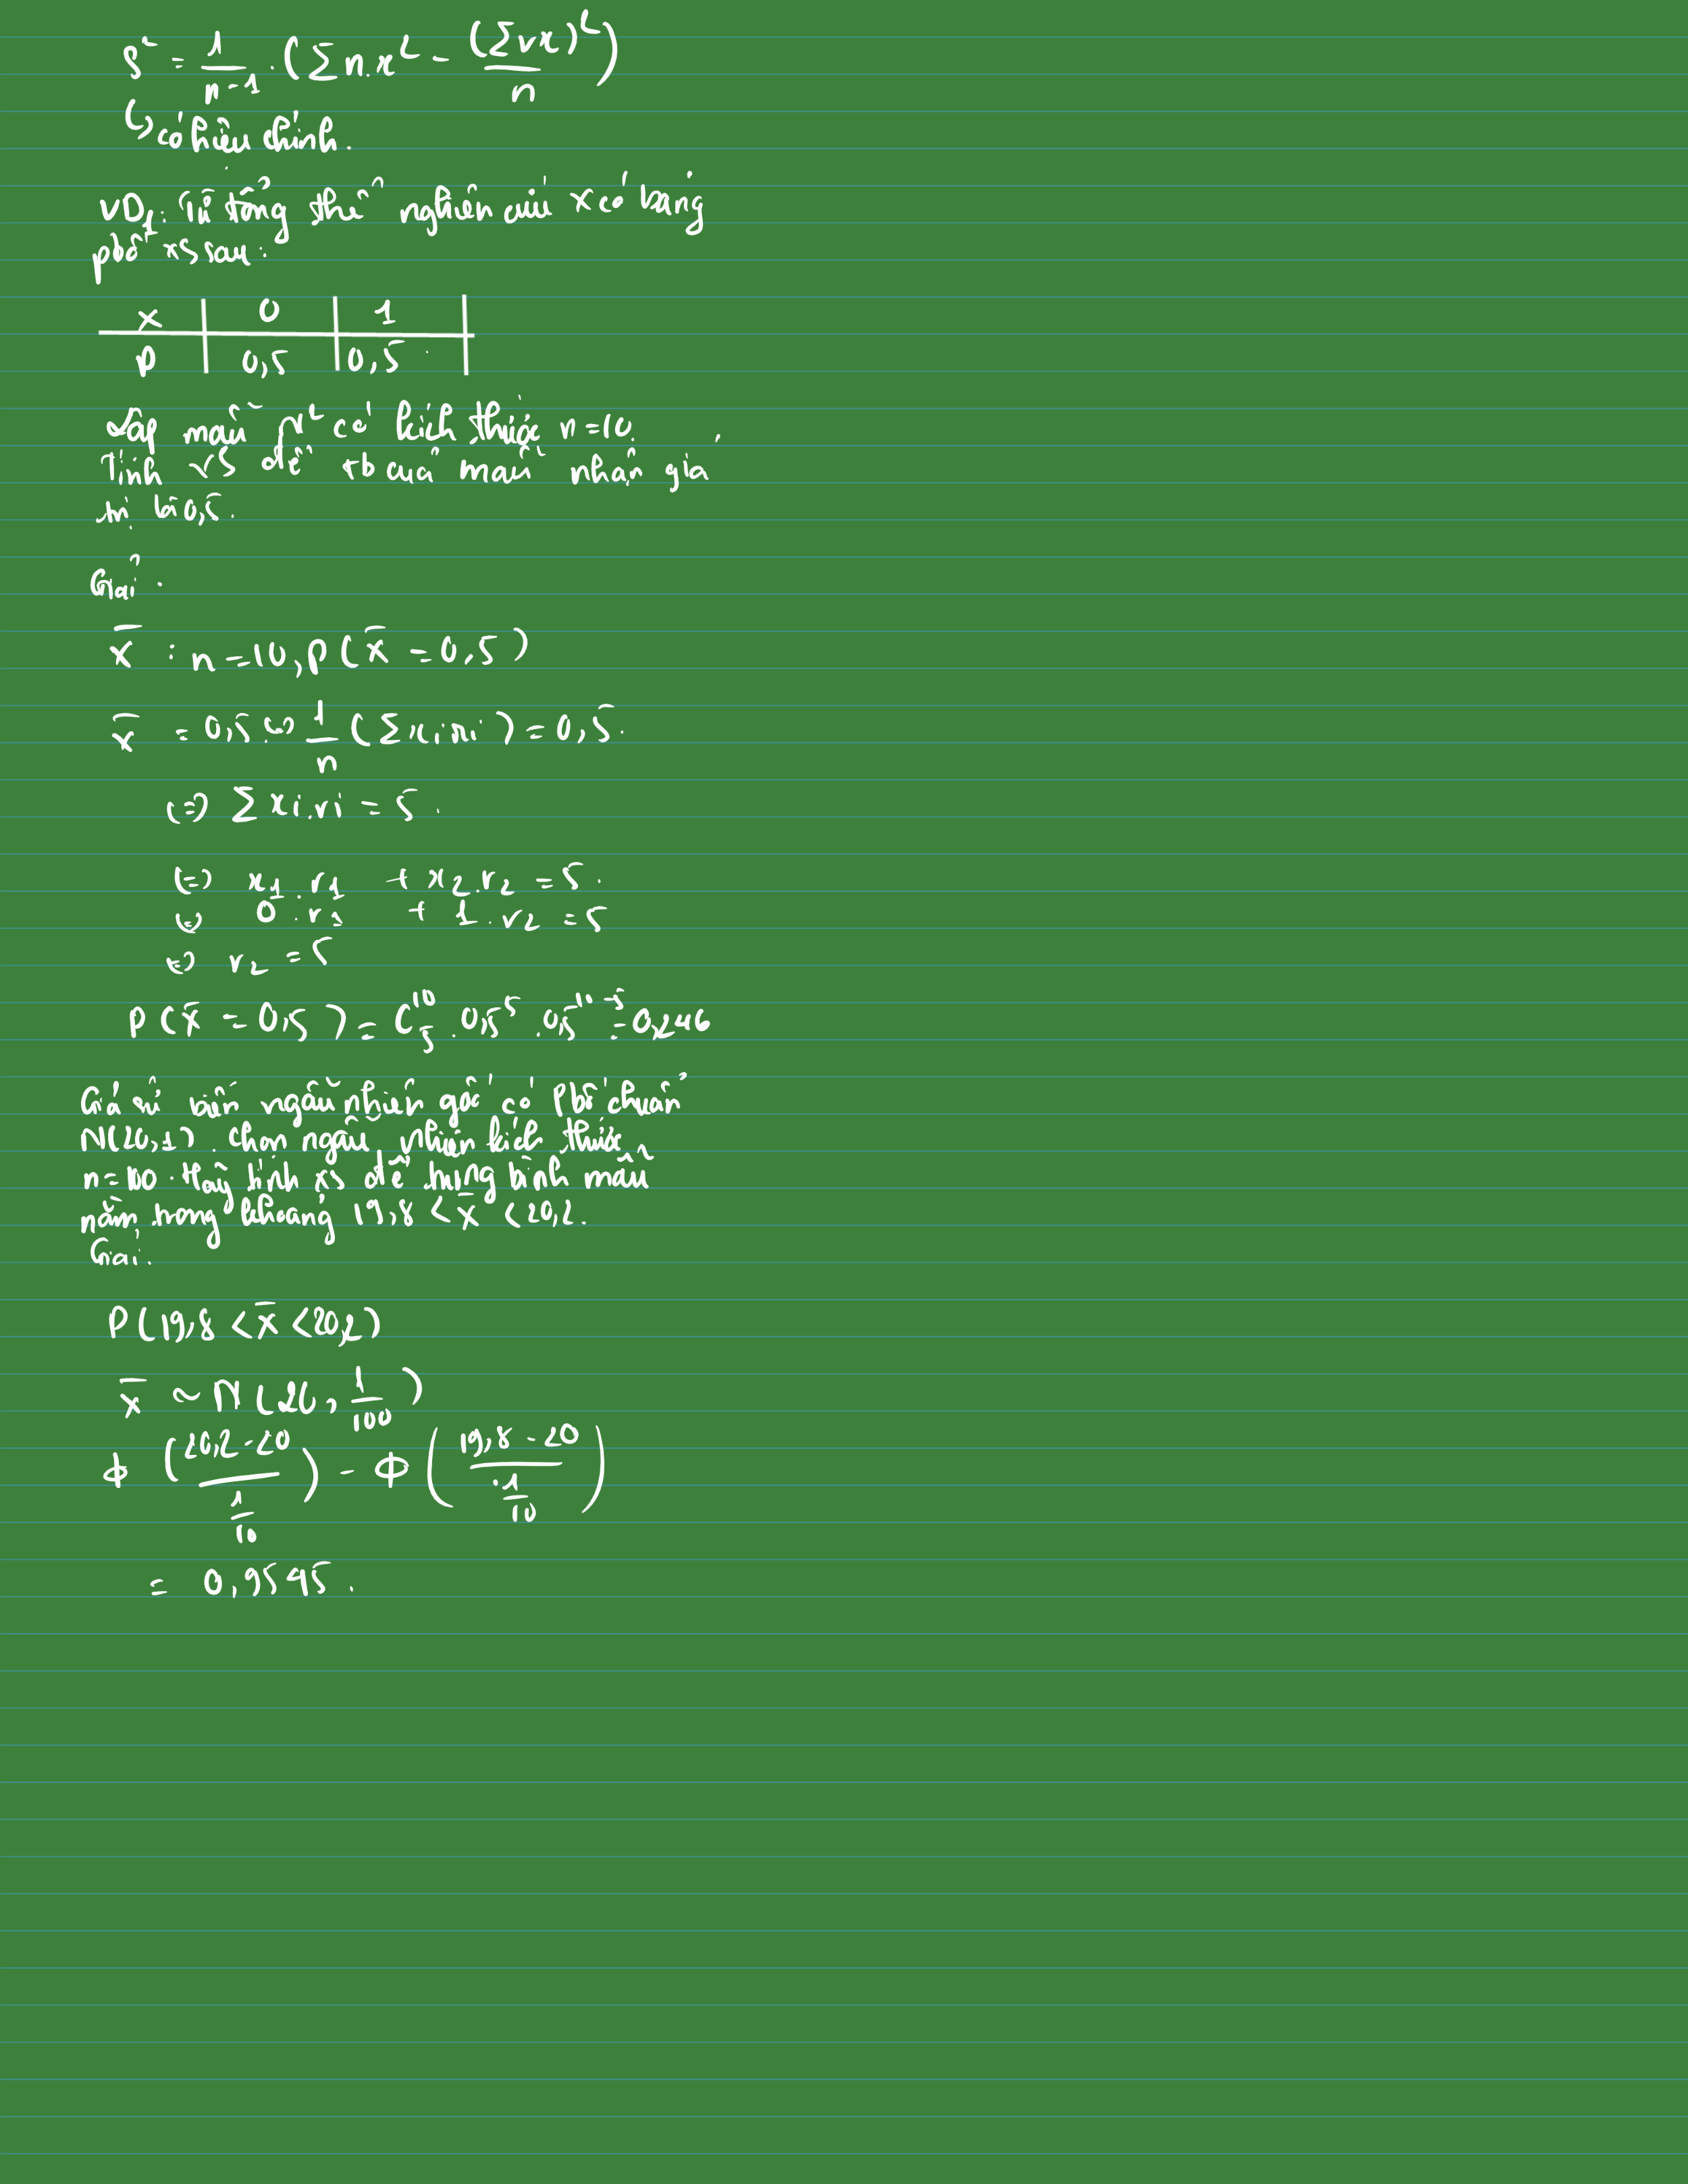 S² = 1/(n-1) . (Σ n.x² - (Σ rx)²/n)
↳ có hiệu chỉnh.
VD1: Từ tổng thể nghiên cứu x có bảng
pbố xs sau:
x | 0 | 1 |
P | 0,5 | 0,5 |
Lập mẫu có kích thước n=10.
Tính xs để tb của mẫu nhận giá
trị là 0,5.
Giải.
x̄ : n=10, P(x̄ = 0,5)
x̄ = 0,5 ⇔ 1/n (Σ xi.ri) = 0,5.
⇔ Σ xi.ri = 5.
⇔ x1.r1 + x2.r2 = 5.
⇔ 0.r1 + 1.r2 = 5
⇔ r2 = 5
P(x̄ = 0,5) = C¹⁰₅ . 0,5⁵ . 0,5¹⁰⁻⁵ = 0,246
Giả sử biến ngẫu nhiên gốc có pbố chuẩn
N(20,1). chọn ngẫu nhiên kích thước
n=100. Hãy tính xs để trung bình mẫu
nằm trong khoảng 19,8 < x̄ < 20,2.
Giải.
P(19,8 < x̄ < 20,2)
x̄ ~ N(20, 1/100)
ϕ ((20,2 - 20)/(1/10)) - ϕ ((19,8 - 20)/(1/10))
= 0,9545.